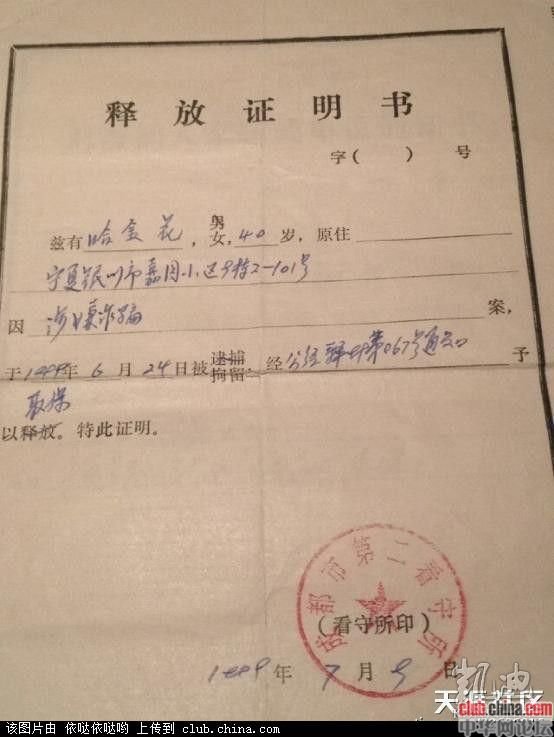 释放证明书
字( ) 号
兹有哈金花,男女,40岁,原住
宁夏银川市嘉园小区
101号
因涉嫌诈骗案,
于1999年6月24日被逮捕拘留,经
号通知予
取保
以释放。特此证明。
成都市第二看守所
(看守所印)
1999年7月9日
凯迪
天涯社区
club.china.com
中华网论坛
该图片由 依哒依哒哟 上传到 club.china.com